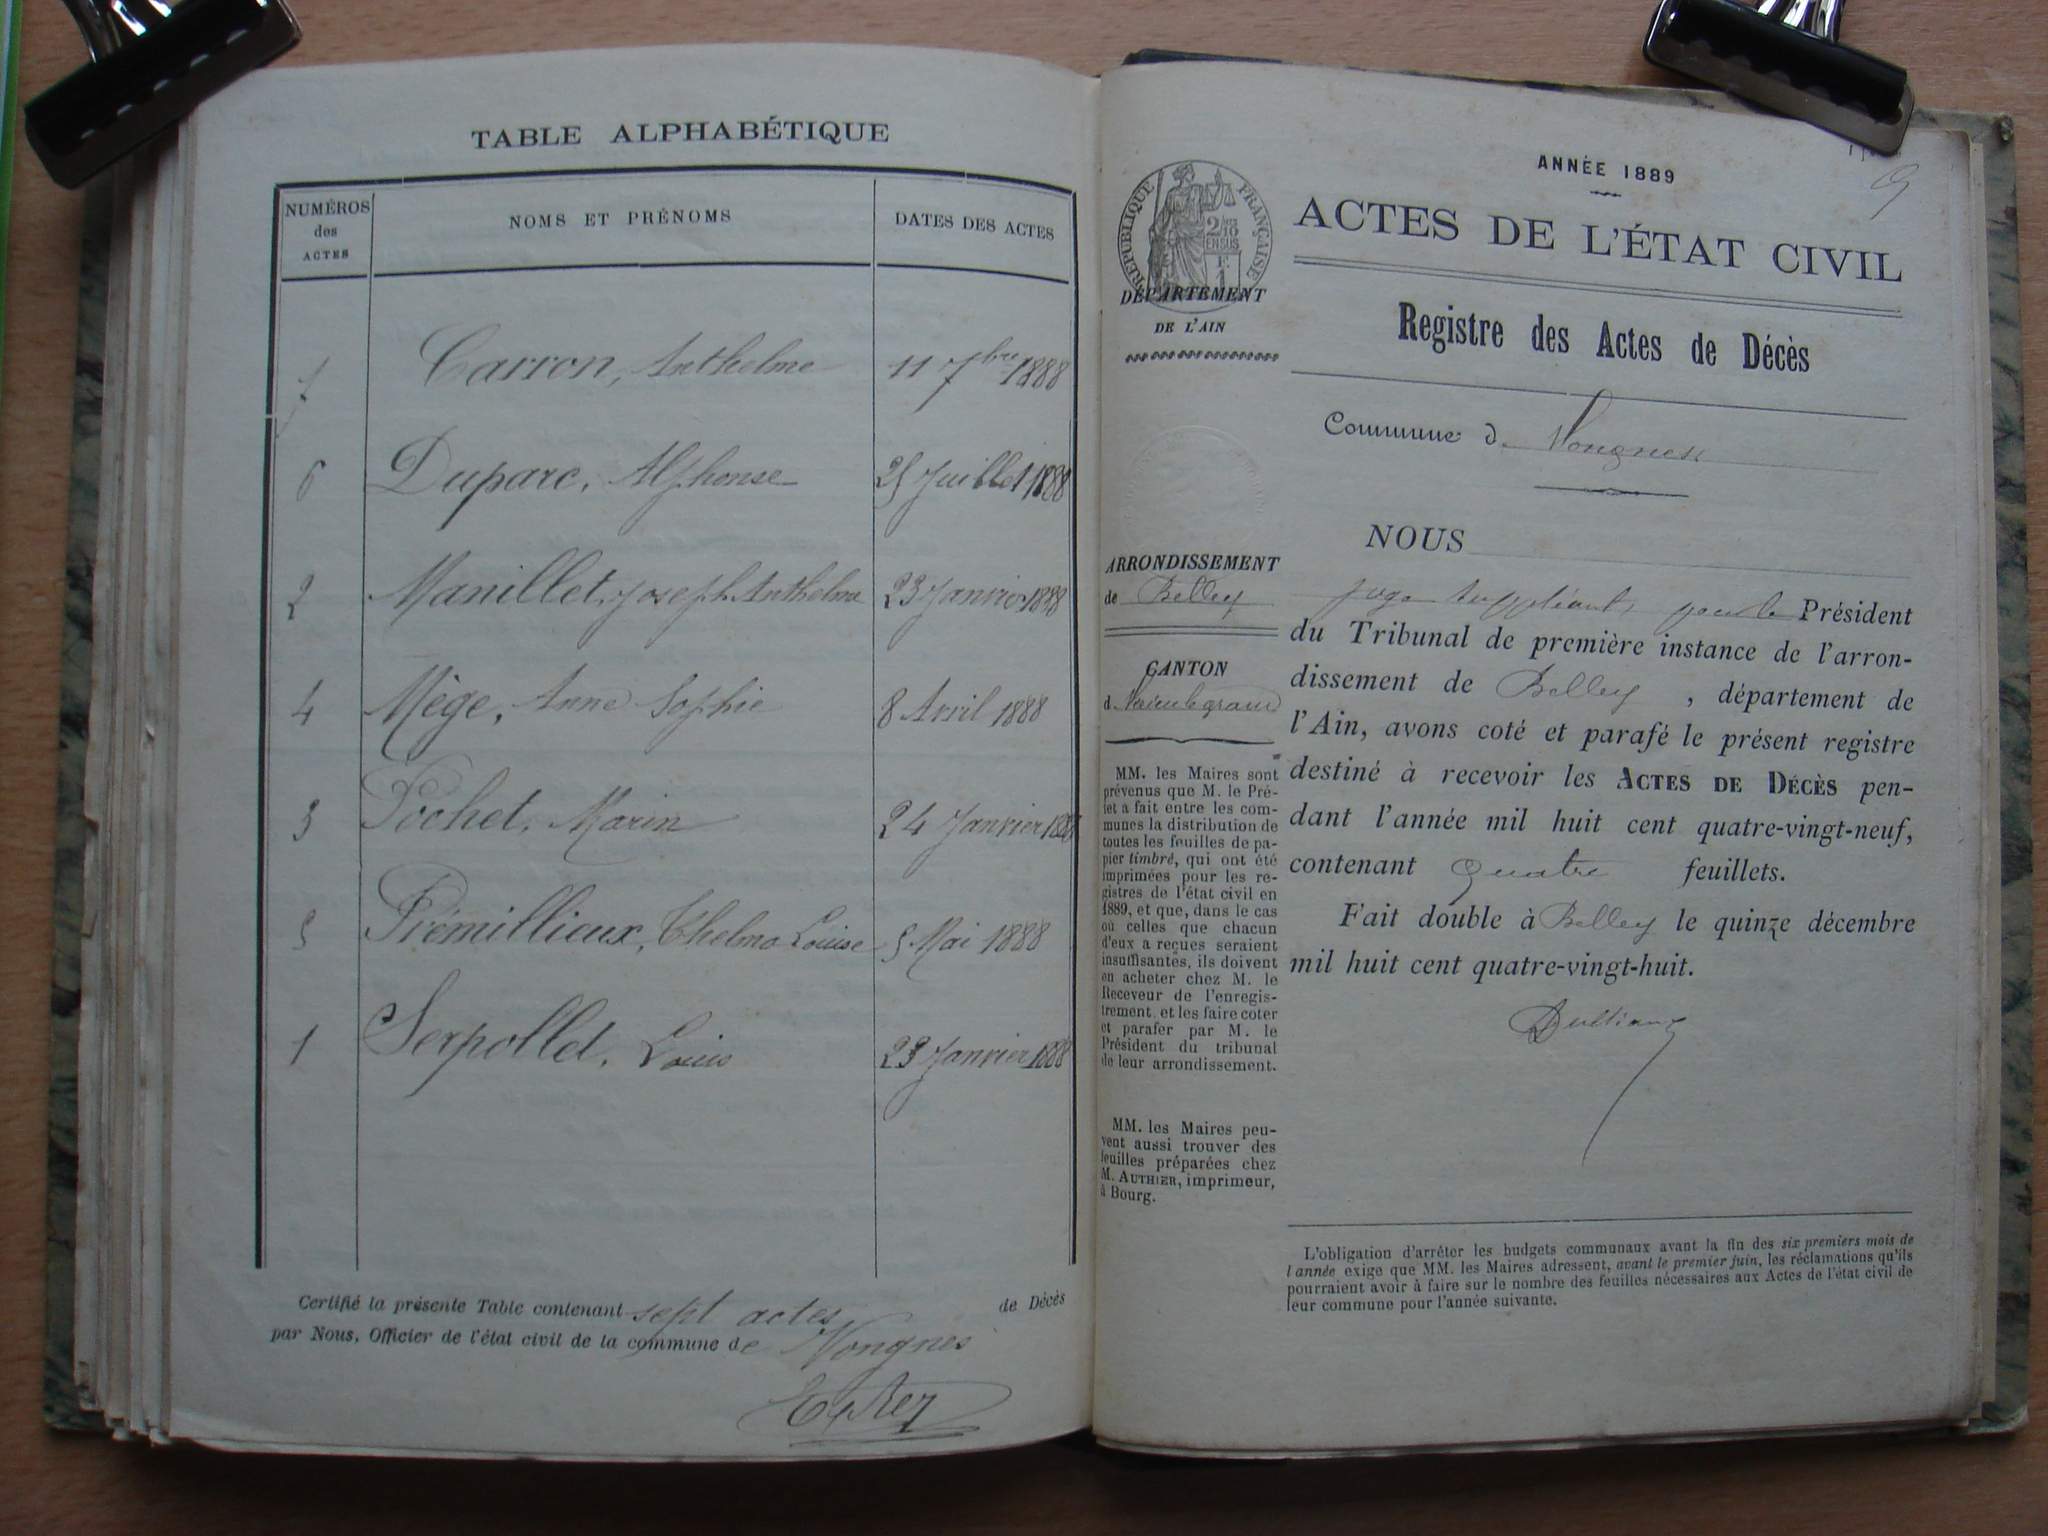 TABLE ALPHABÉTIQUE
NUMÉROS
des
ACTES
NOMS ET PRÉNOMS
DATES DES ACTES
7 Carron, Anthelme 11 7bre 1888
6 Duparc, Alphonse 25 Juillet 1888
2 Manillet, Joseph Anthelme 23 Janvier 1888
4 Mège, Anne Sophie 8 Avril 1888
3 Pochet, Marin 24 Janvier 1888
5 Prémillieux, Thelma Louise 5 Mai 1888
1 Serpollet, Louis 23 Janvier 1888
Certifié la présente Table contenant sept actes de Décès
par Nous, Officier de l'état civil de la commune de Vongnes
ANNÉE 1889
ACTES DE L'ÉTAT CIVIL
Registre des Actes de Décès
Commune de Vongnes
RÉPUBLIQUE FRANÇAISE
2/10
EN SUS
F.
1
DÉPARTEMENT
DE L'AIN
ARRONDISSEMENT
de Belley
CANTON
MM. les Maires sont
prévenus que M. le Pré-
fet a fait entre les com-
munes la distribution de
toutes les feuilles de pa-
pier timbré, qui ont été
imprimées pour les re-
gistres de l'état civil en
1889, et que, dans le cas
où celles que chacun
d'eux a reçues seraient
insuffisantes, ils doivent
en acheter chez M. le
Receveur de l'enregis-
trement et les faire coter
et parafer par M. le
Président du tribunal
de leur arrondissement.
MM. les Maires peu-
vent aussi trouver des
feuilles préparées chez
M. AUTHIER, imprimeur,
à Bourg.
NOUS
juge suppléant, pour le Président
du Tribunal de première instance de l'arron-
dissement de Belley, département de
l'Ain, avons coté et parafé le présent registre
destiné à recevoir les ACTES DE DÉCÈS pen-
dant l'année mil huit cent quatre-vingt-neuf,
contenant quatre feuillets.
Fait double à Belley le quinze décembre
mil huit cent quatre-vingt-huit.
L'obligation d'arrêter les budgets communaux avant la fin des six premiers mois de
l'année exige que MM. les Maires adressent, avant le premier juin, les réclamations qu'ils
pourraient avoir à faire sur le nombre des feuilles nécessaires aux Actes de l'état civil de
leur commune pour l'année suivante.